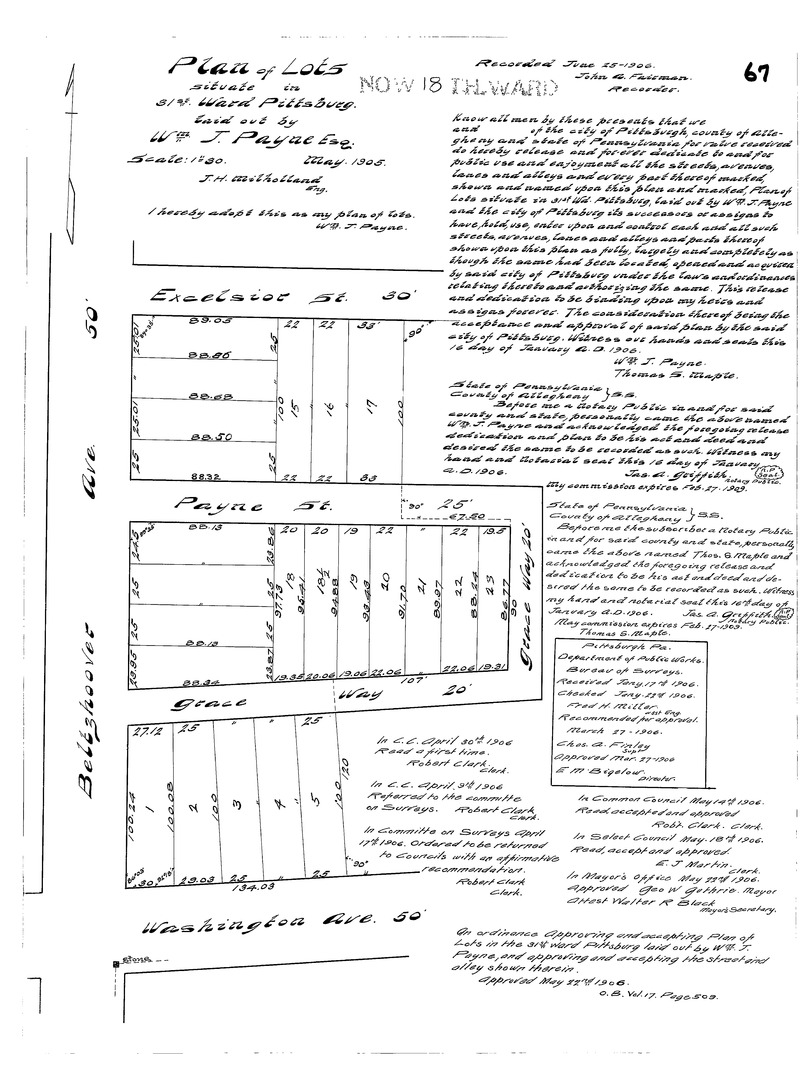 67
Plan of Lots
situate in
31st. Ward Pittsburg.
laid out by
Wm. J. Payne Esq.
Scale: 1"=30. May. 1905.
J.H. Milholland
Eng.
I hereby adopt this as my plan of lots.
Wm. J. Payne.
NOW 18 TH. WARD
Recorded June 25-1906.
John A. Fairman.
Recorder.
Know all men by these presents that we
and of the city of Pittsburgh, county of Alle-
gheny and state of Pennsylvania for value received
do hereby release and forever dedicate to and for
public use and enjoyment all the streets, avenues,
lanes and alleys and every part thereof marked,
shown and named upon this plan and marked, Plan of
Lots situate in 31st Wd. Pittsburg, laid out by Wm. J. Payne
and the city of Pittsburg its successors or assigns to
have, hold, use, enter upon and control each and all such
streets, avenues, lanes and alleys and parts thereof
shown upon this plan as fully, largely and completely as
though the same had been located, opened and acquired
by said city of Pittsburg under the laws and ordinances
relating thereto and authorizing the same. This release
and dedication to be binding upon my heirs and
assigns forever. The consideration thereof being the
acceptance and approval of said plan by the said
city of Pittsburg. Witness our hands and seals this
16 day of January A.D. 1906.
Wm. J. Payne.
Thomas S. Maple.
State of Pennsylvania
County of Allegheny } S.S.
Before me a Notary Public in and for said
county and state, personally came the above named
Wm. J. Payne and acknowledged the foregoing release
dedication and plan to be his act and deed and
desired the same to be recorded as such. Witness my
hand and notarial seal this 16 day of January
A.D. 1906. Jas. A. Griffith. N.P. Seal
Notary Public.
My commission expires Feb. 27-1909.
State of Pennsylvania
County of Allegheny } S.S.
Before me the subscriber a Notary Public
in and for said county and state, personally
came the above named Thos. S. Maple and
acknowledged the foregoing release and
dedication to be his act and deed and de-
sired the same to be recorded as such. Witness
my hand and notarial seal this 16th day of
January A.D. 1906. Jas. A. Griffith N.P. Seal
Notary Public.
My commission expires Feb. 27-1909.
Thomas S. Maple.
Pittsburgh Pa.
Department of Public Works.
Bureau of Surveys.
Received Jany. 17th 1906.
Checked Jany. 22nd 1906.
Fred H. Miller
asst Eng.
Recommended for approval.
March 27-1906.
Chas. A. Finley
Supt
Approved Mar. 27-1906
E M Bigelow
Director.
In Common Council May 14th 1906.
Read, accepted and approved
Robt. Clark. Clerk.
In Select Council May. 18th 1906.
Read, accept and approved.
E. J Martin.
Clerk.
In Mayor's Office May 22nd 1906.
Approved Geo W Guthrie. Mayor
Attest Walter R Black
Mayor's Secretary.
An ordinance Approving and accepting Plan of
Lots in the 31st Ward Pittsburg laid out by Wm. J.
Payne, and approving and accepting the street and
alley shown therein.
Approved May 22nd 1906.
O.B. Vol. 17. Page 509.
In C.C. April 30th 1906
Read a first time.
Robert Clark.
Clerk.
In C.C. April. 9th 1906
Referred to the committe
on Surveys. Robert Clark
Clerk.
In Committe on Surveys April
17th 1906. Ordered to be returned
to Councils with an affirmative
recommendation.
Robert Clark
Clerk.
Beltzhoover Ave. 50'
Excelsior St. 30'
89.05 22 22 33' 90°
25.01 25
88.86
"
88.68
25.01 100 15 16 17 100
88.50
25 25
88.32 22 22 33
Payne St. 25'
90° 67.20
88.13 20 20 19 22 22 19.5
24.5 23.86
"
25 25 97.13 18 95.41 18½ 94.88 19 93.43 20 91.70 21 89.97 22 88.24 23 86.77 90
25 25
88.13
23.95 23.87
88.34 19.35 20.06 19.06 22.06 " 22.06 19.31
107'
Grace Way 20'
Grace Way 20'
27.12 25 " " 25
100.24 1 100.08 2 100 3 " 4 " 5 100 120
30 29.03 25 " 25 90°
134.03
Washington Ave. 50'
Stone